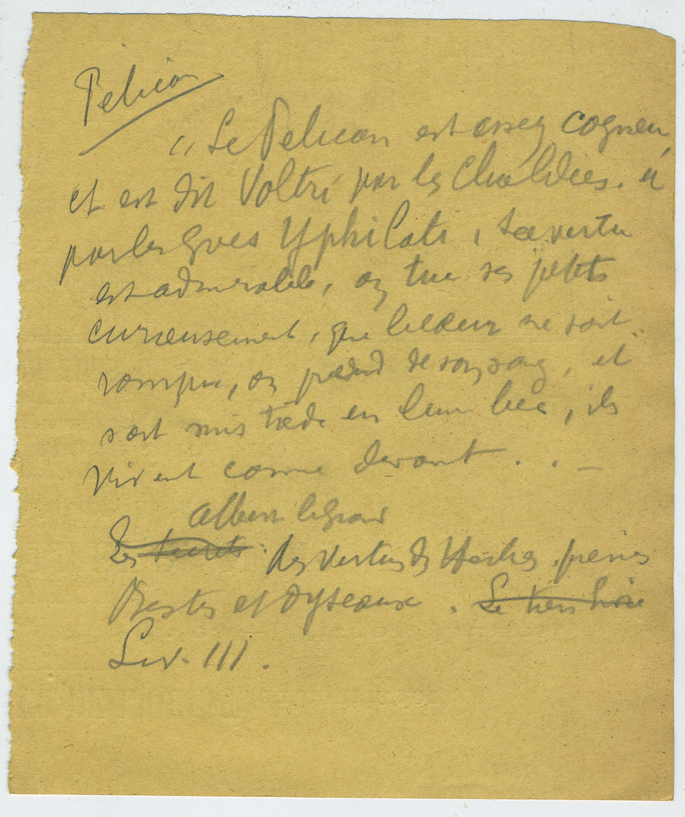 Pélican
"Le Pelican est assez cogneu,
et est dit Voltri par les Chaldées. &
par les Grecs Yphilati, sa vertu
est admirable, on tue ses petits
curieusement, que le cœur ne soit
rompu, on prend de son sang, et
soit mis tiède en leur bec, ils
vivent comme devant . . _
Albert le Grand
Les secrets : des vertus des Herbes, pierres
Bestes et Oyseaux. Le tiers livre
Liv. III.